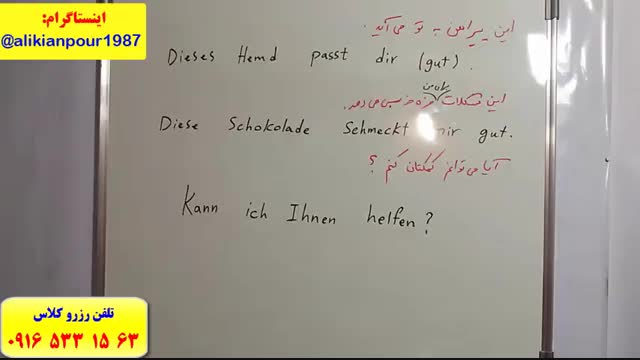 اینستاگرام:
@alikianpour1987
این پیراهن به تو می آید.
Dieses Hemd passt dir (gut).
برای من
این شکلات مزه خوبی می دهد.
Diese Schokolade schmeckt mir gut.
آیا می توانم کمکتان کنم ؟
Kann ich Ihnen helfen?
تلفن رزرو کلاس
۰۹۱۶ ۵۳۳ ۱۵ ۶۳